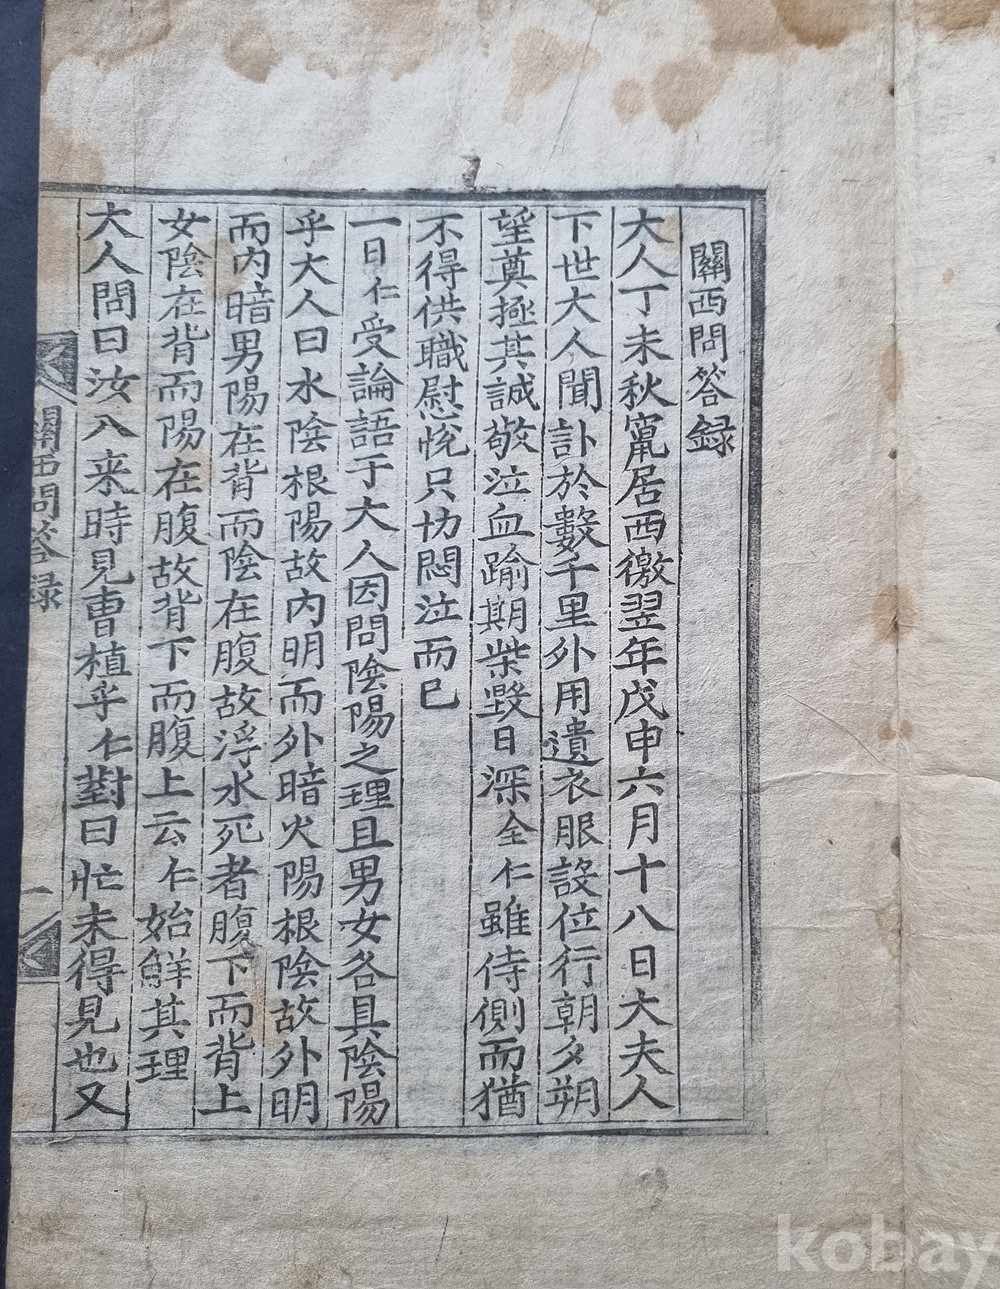 關西問答録
大人丁未秋竄居西徼翌年戊申六月十八日大夫人
下世大人聞訃於數千里外用遺衣服設位行朝夕朔
望奠極其誠敬泣血踰期柴毁日深全仁雖侍側而猶
不得供職慰悅只切悶泣而已
一日仁受論語于大人因問陰陽之理且男女各具陰陽
乎大人曰水陰根陽故內明而外暗火陽根陰故外明
而內暗男陽在背而陰在腹故浮水死者腹下而背上
女陰在背而陽在腹故背下而腹上云仁始觧其理
大人問曰汝入来時見曺植乎仁對曰忙未得見也又
關西問答録
一
kobay